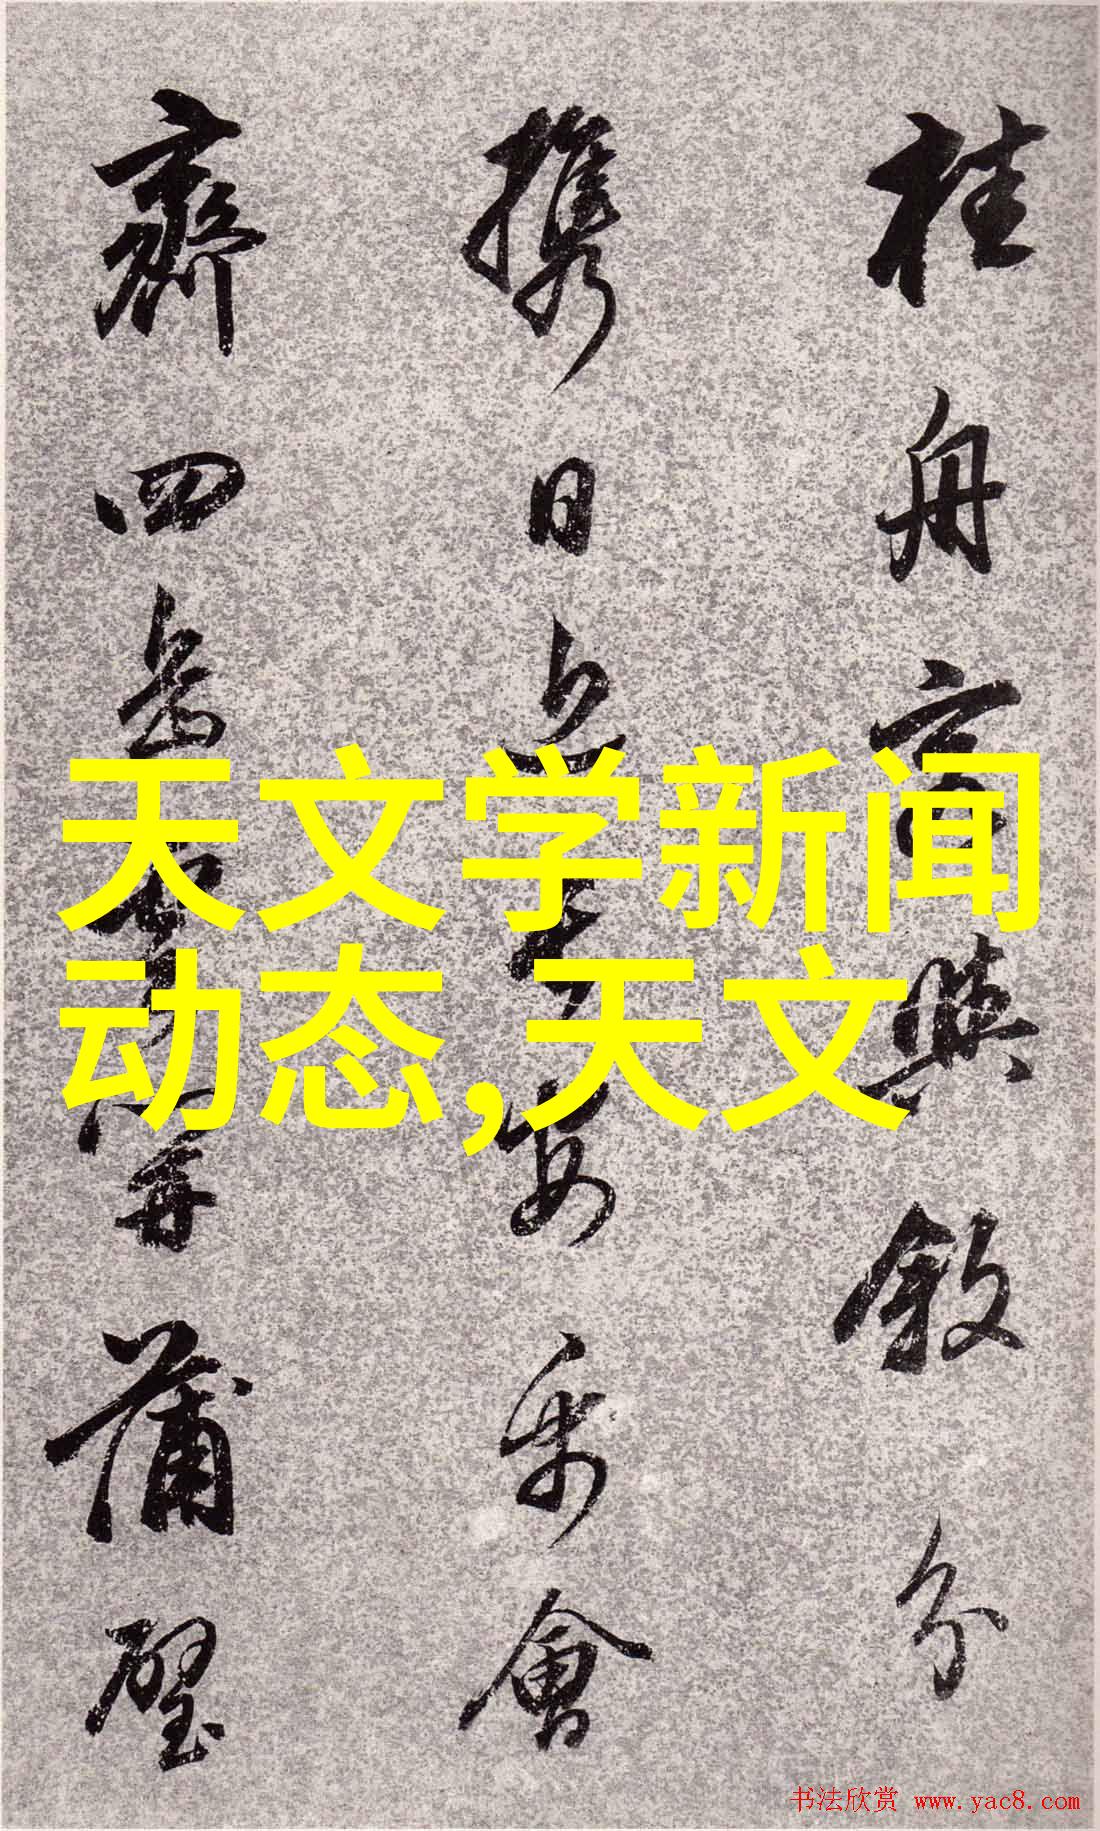 天文学新闻
动态,天文
桂舟敘分
攜日安會
齊四岳蒲璧
书法欣赏 www.yac8.com